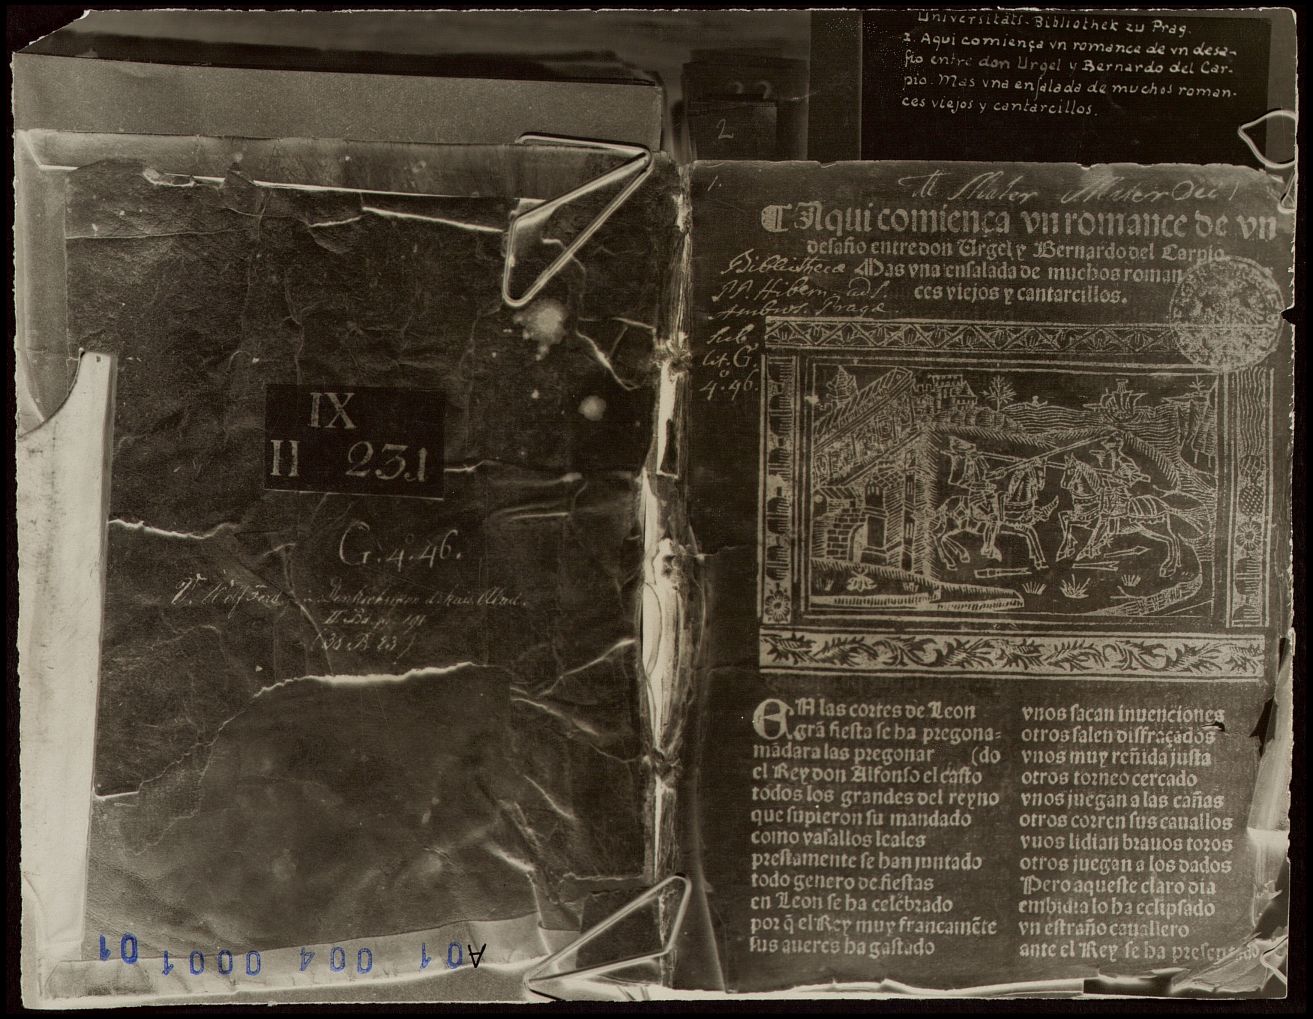 Universitäts-Bibliothek zu Prag.
2. Aqui comiença vn romance de vn desa-
fio entre don Urgel y Bernardo del Car-
pio. Mas vna enſalada de muchos roman-
ces viejos y cantarcillos.
2
IX
II 231
G. 4.º 46.
II Bd. p. 191
1.
Mater Dei
Bibliothecæ
PP. Hibern. ad S.
Ambros. Pragæ
lit. G.
4.º 46.
Aqui comiença vn romance de vn
deſafio entre don Urgel y Bernardo del Carpio
Mas vna enſalada de muchos roman
ces viejos y cantarcillos.
EN las cortes de Leon
grã fieſta ſe ha pregona=
mãdara las pregonar (do
el Rey don Alfonſo el caſto
todos los grandes del reyno
que ſupieron ſu mandado
como vaſallos leales
preſtamente ſe han juntado
todo genero de fieſtas
en Leon ſe ha celebrado
por q̃ el Rey muy francamẽte
ſus aueres ha gaſtado
vnos ſacan inuenciones
otros ſalen diſfraçados
vnos muy reñida juſta
otros torneo cercado
vnos juegan a las cañas
otros corren ſus cauallos
vnos lidian brauos toros
otros juegan a los dados
Pero aqueſte claro dia
embidia lo ha eclipſado
vn eſtraño cauallero
ante el Rey ſe ha preſentado
A01 004 0001 01